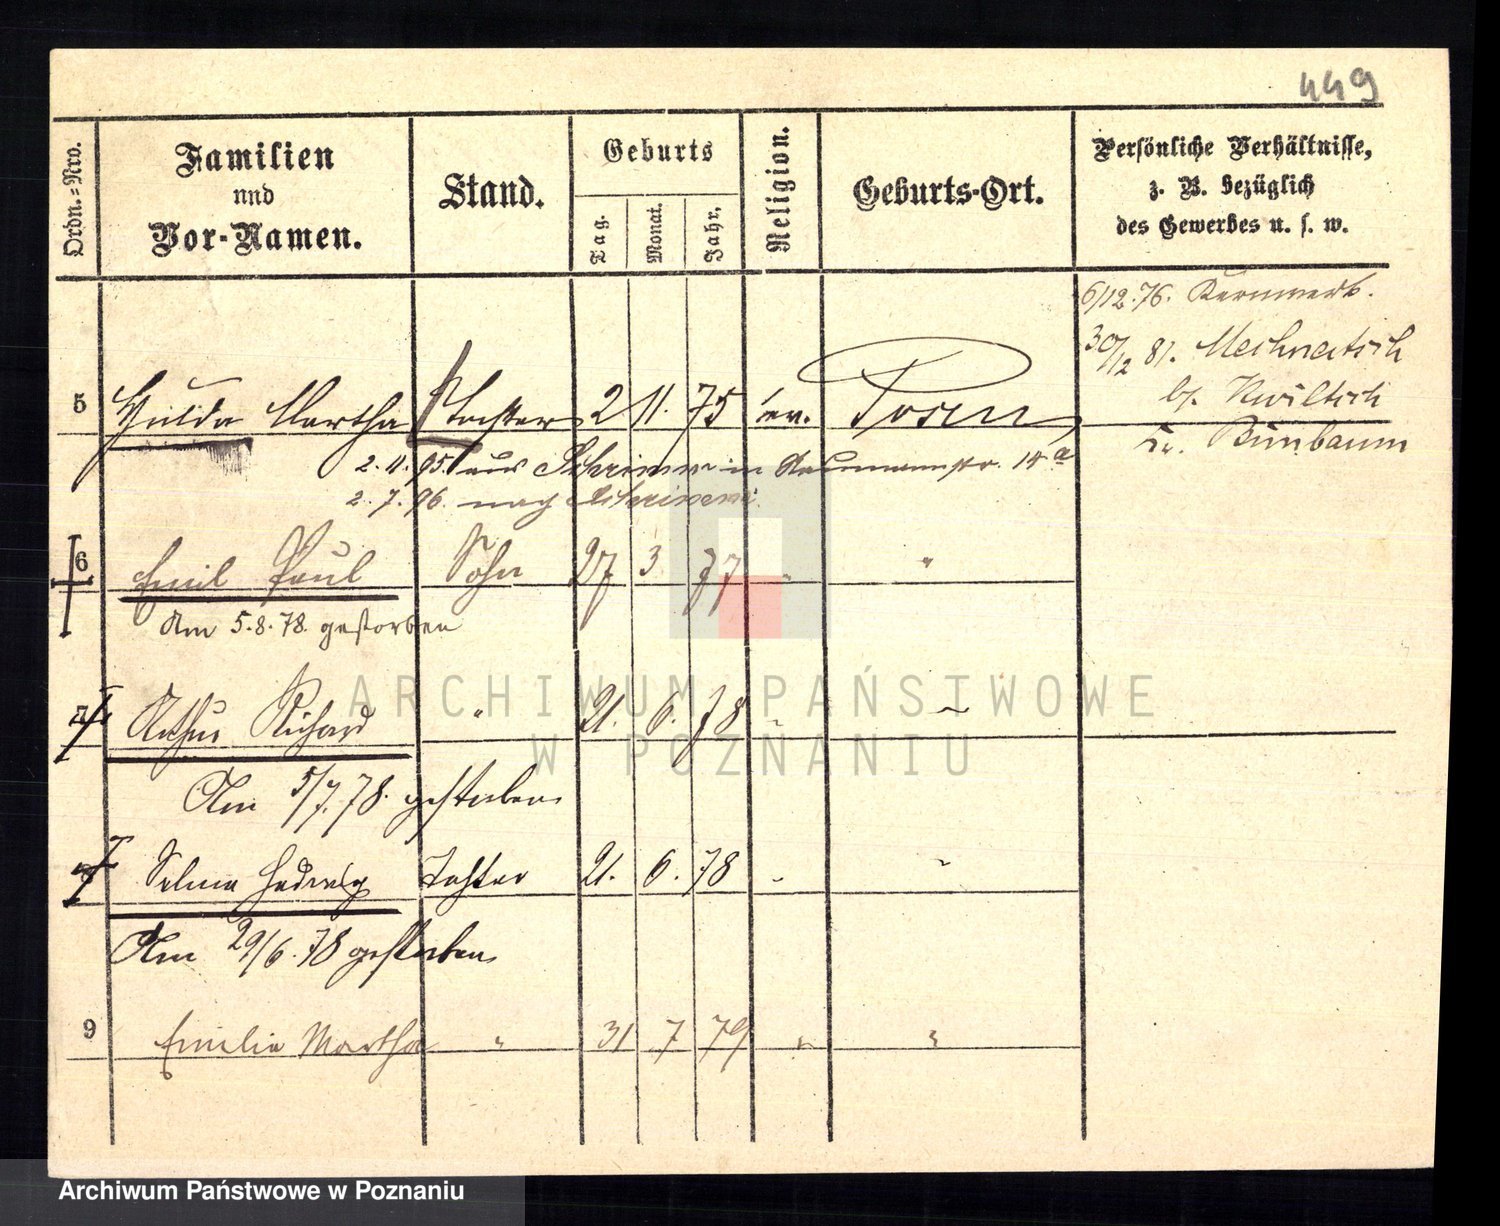 449
Ordn.-Nro.
Familien
und
Vor-Namen.
Stand.
Geburts
Tag.
Monat.
Jahr.
Religion.
Geburts-Ort.
Persönliche Verhältnisse,
z. B. bezüglich
des Gewerbes u. s. w.
6/12.76. Kernwerk.
30/12 81.
b/
Kr. Birnbaum
5 Hulda Martha Tochter 2 11. 75 ev. Posen
2.11.95. aus Schrimm in Naumannstr. 14a
2.7.96. nach Schrimm
6 Emil Paul Sohn 27 3 77 " "
Am 5.8.78. gestorben
7 Arthur Richard " 21. 6. 78 " "
Am 5/7.78. gestorben
8 Selma Hedwig Tochter 21. 6. 78 " "
Am 29/6.78 gestorben
9 Emilie Martha " 31 7 79 " "
ARCHIWUM PAŃSTWOWE
W POZNANIU
Archiwum Państwowe w Poznaniu